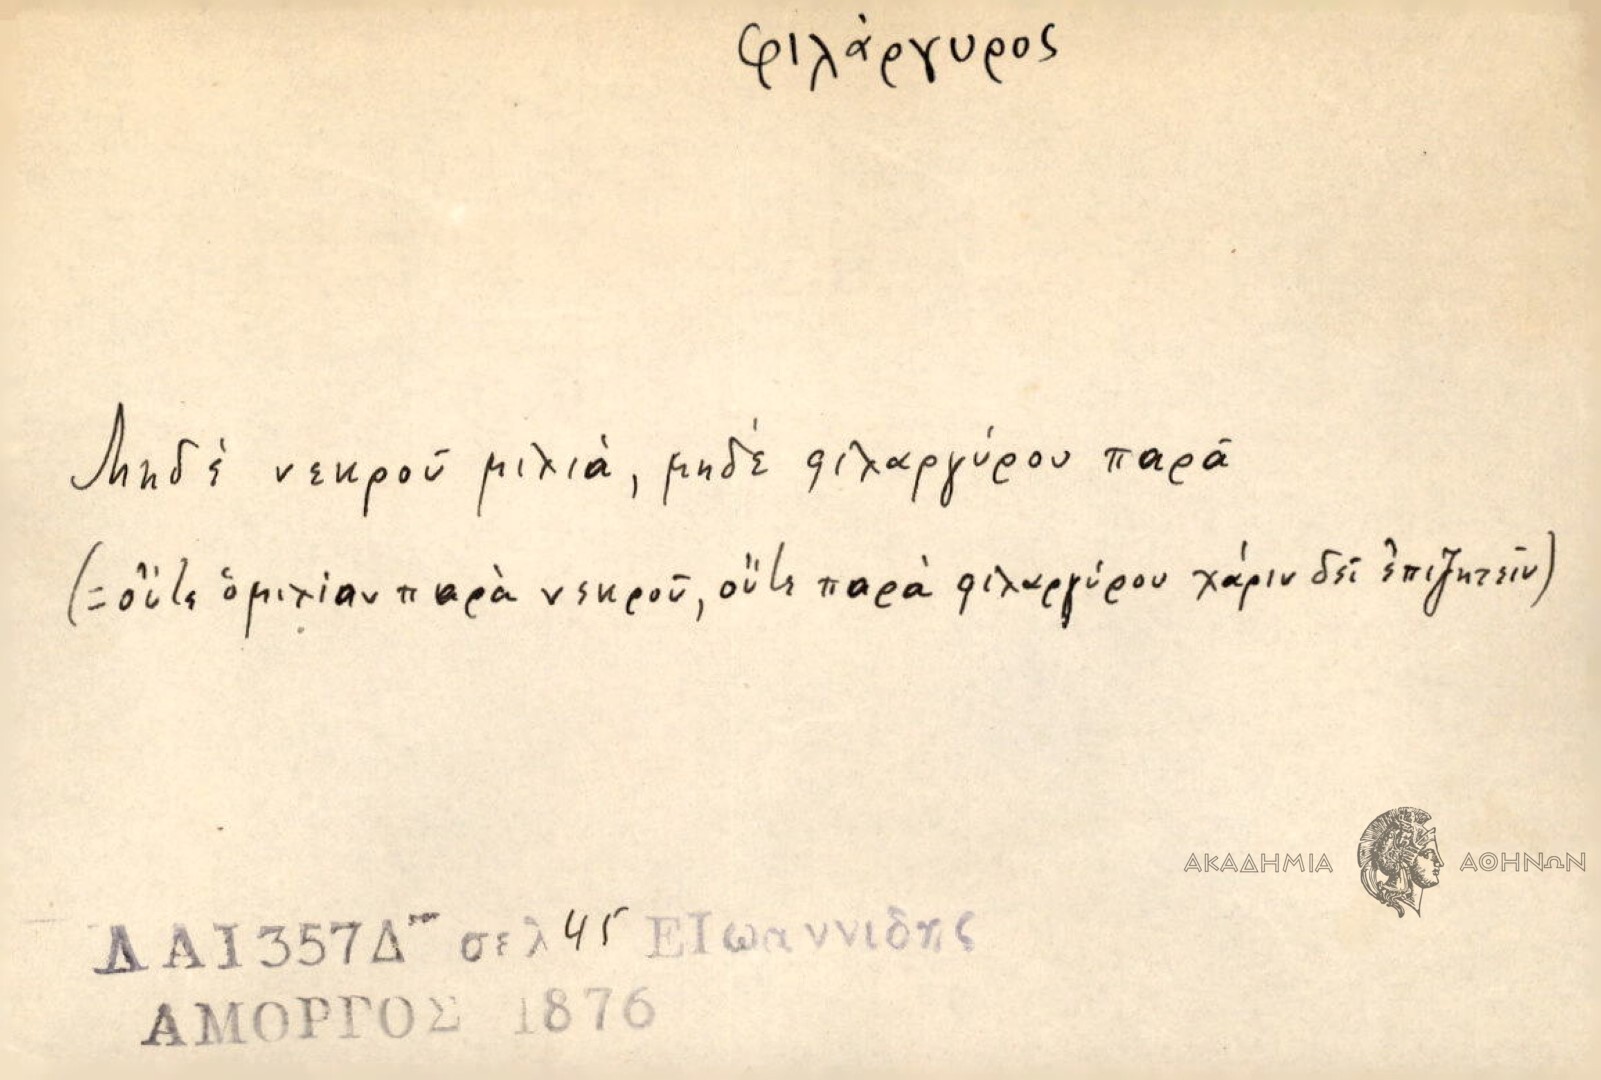 φιλάργυρος
Μηδὲ νεκροῦ μιλιά, μηδὲ φιλαργύρου παρᾶ
(= οὔτε ὁμιλίαν παρὰ νεκροῦ, οὔτε παρὰ φιλαργύρου χάριν δεῖ ἐπιζητεῖν)
ΑΚΑΔΗΜΙΑ ΑΘΗΝΩΝ
ΛΑΙ357Δ σελ 45 ΕΙωαννιδης
ΑΜΟΡΓΟΣ 1876